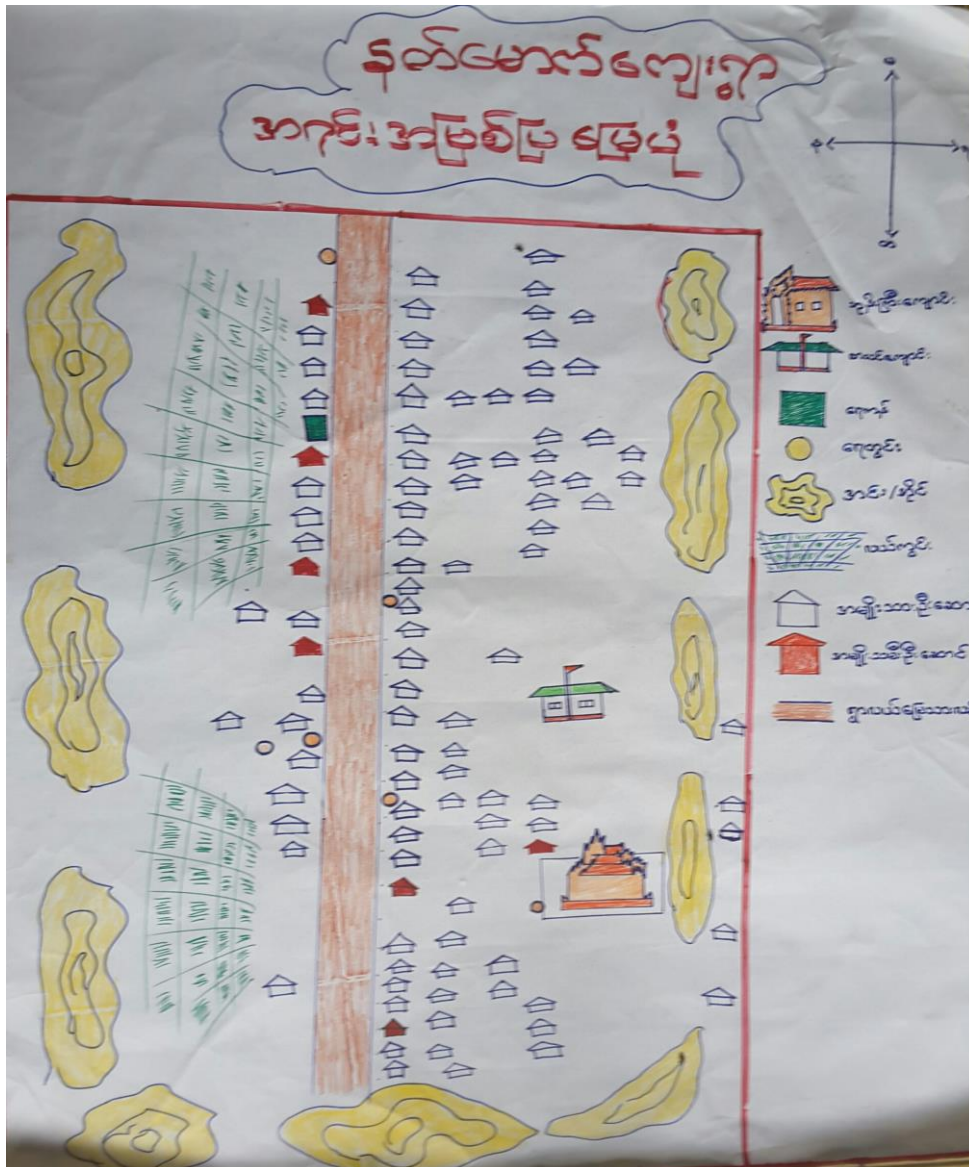 နတ်မောက်ကျေးရွာ
အရင်းအမြစ်ပြ မြေပုံ
ဘုန်းကြီးကျောင်း
စာသင်ကျောင်း
ရေကန်
ရေတွင်း
အင်း/အိုင်
လယ်ကွင်း
အမျိုးသားဦးဆော
အမျိုးသမီးဦးဆောင်
ရွာလယ်မြေသားလ